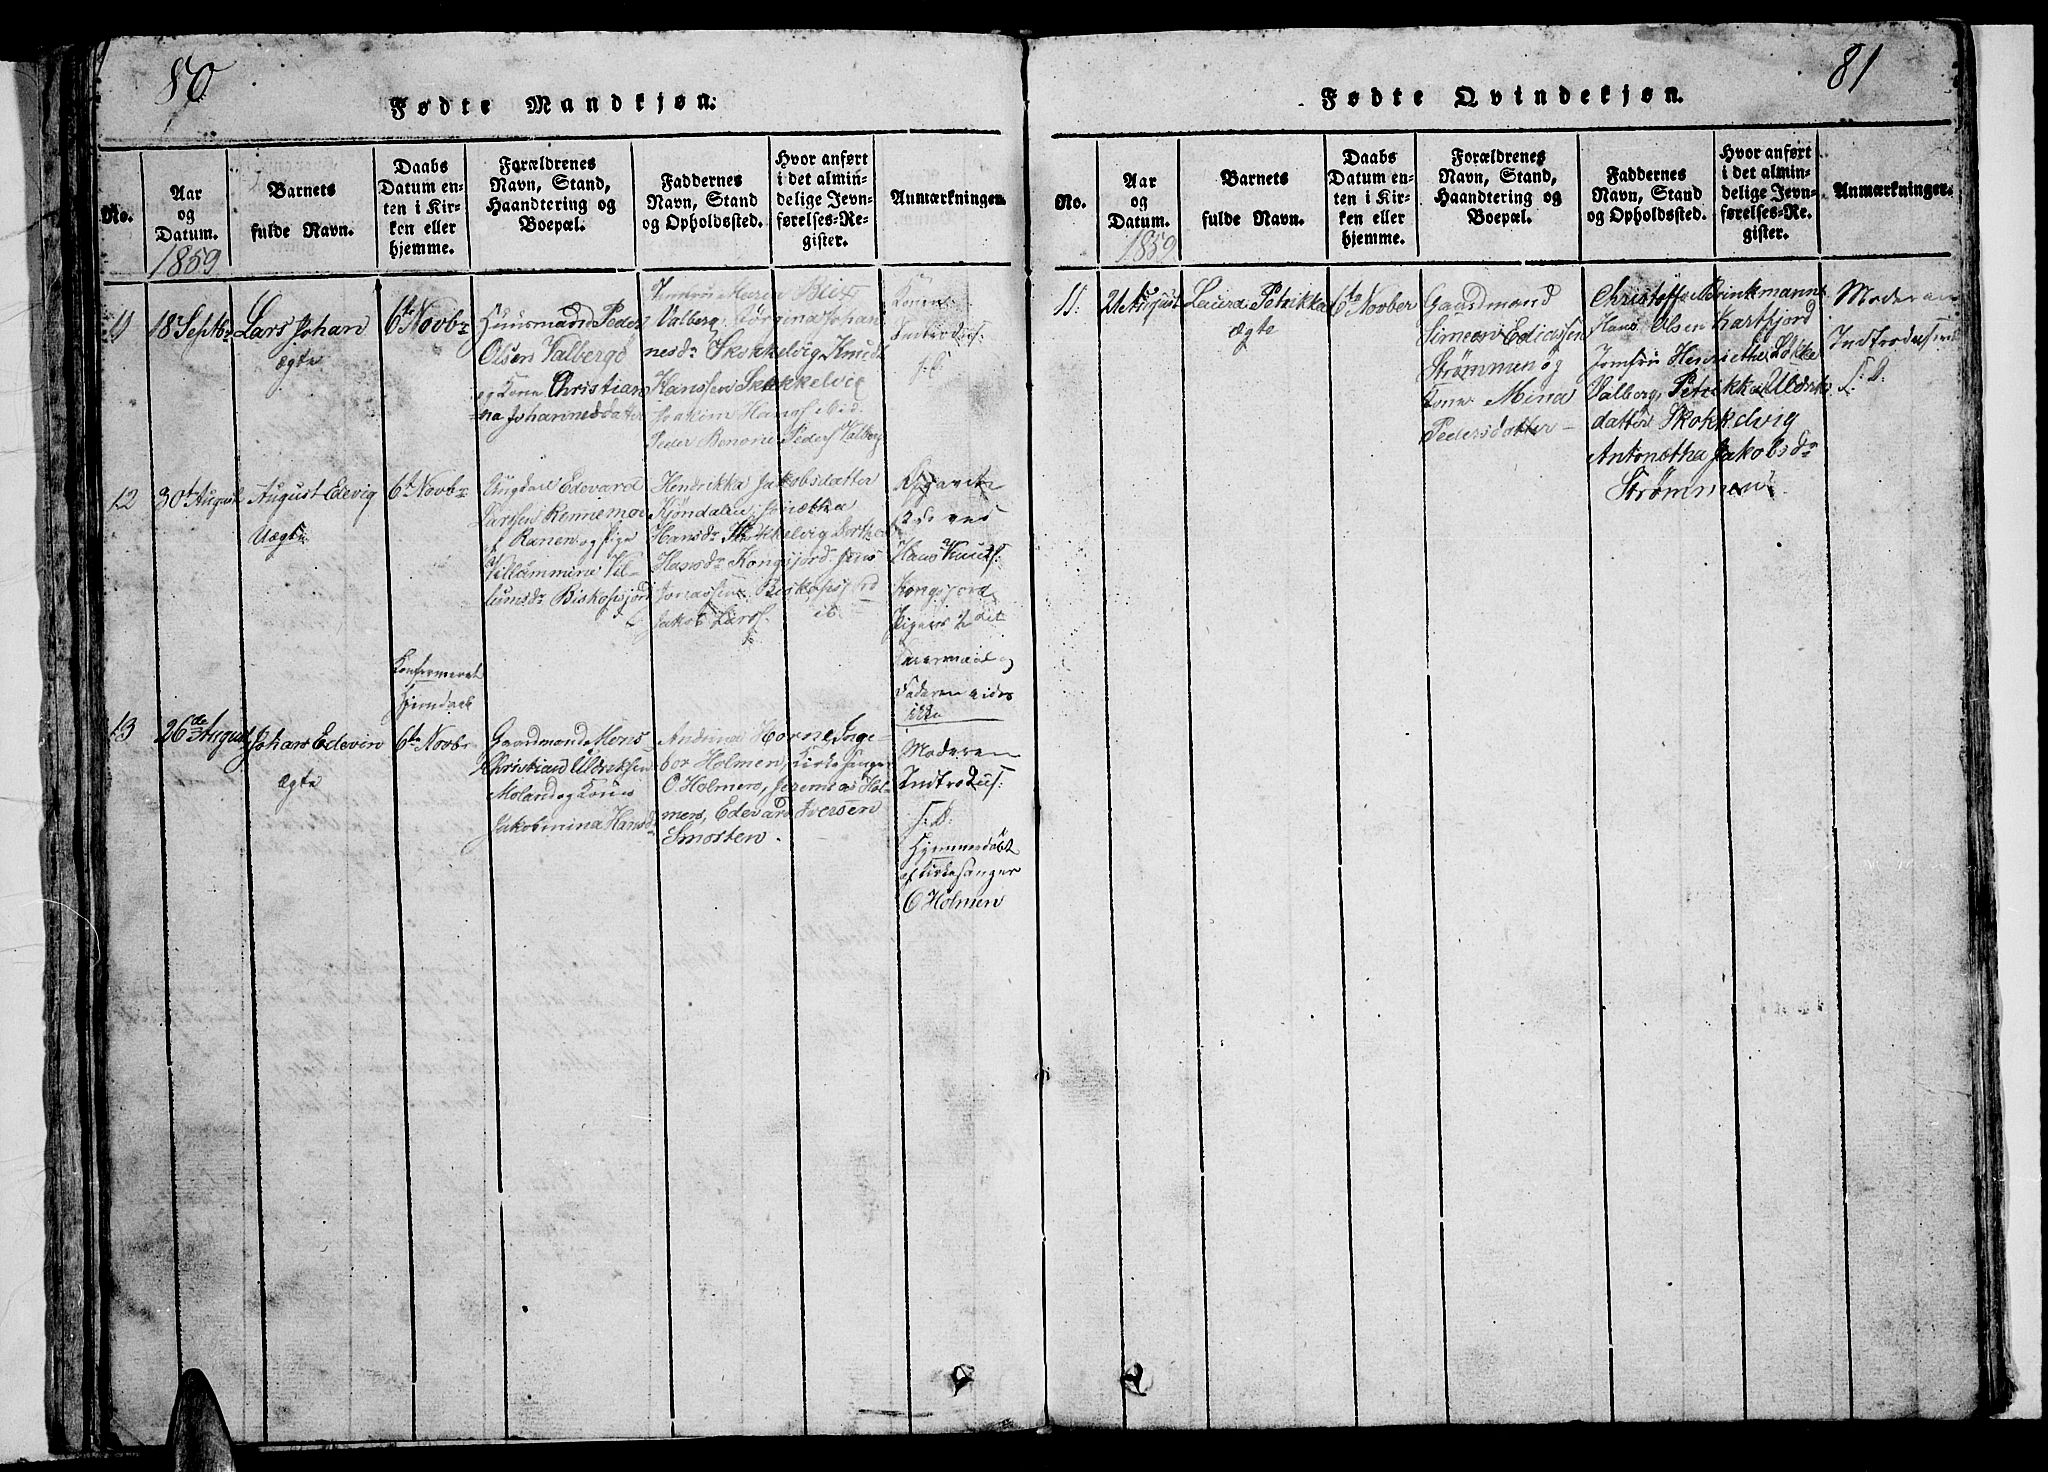 80
Fødte Mandkjøn.
No.
Aar
og
Datum.
1859
Barnets
fulde Navn.
Daabs
Datum en-
ten i Kir-
ken eller
hjemme.
Forældrenes
Navn, Stand,
Haandtering og
Boepæl.
Faddernes
Navn, Stand
og Opholdssted.
Hvor anført
i det almin-
delige Jevn-
førelses-Re-
gister.
Anmærkninger.
11
18 Septbr
Lars Johan
ægte
6te Novbr
Huusmand Peder
Olsen Valberg
og Kone Christian
na Johannesdatter
Jomfrue Maren Blix
Valberg, Jørgina Johan
nesdr Skokkelvig, Knud
Hanssen Skokkelvig
Joakim Hanss
Peder Benoni Peders Valberg
Konen
Introdus.
s. D.
12
30te August
August Edevig
Uægte
6te Novbr
Ungkarl Edevard
Larssen Rennemo
af Ranen og Pige
Villummine Vil-
lumsdr Biskopsfjord
Hendrikka Jakobsdatter
Kjøndalen
Hansdr Skokkelvig
Hansdr Kongsfjord Jens
Jonassen Biskopsfjord
Jakob Larss.
Hans Knuds.
Kongsfjord
Pigens 2det
Leiermaal og
Faderen vides
ikke
13
26de August
Johan Edevin
ægte
Konfermeret
Hjemdaab
6te Novbr
Gaardmand Mons
Christian Ulriksen
Moland og Kone
Jakobmina Hansd.
Andrina Horn, Inge-
bor Holmen, Kirkesanger
O Holmen, Jeremias Hol-
men, Edevard Iversen
Smorten.
Moderen
Indtrodus.
s. D.
Hjemmedøbt
af Kirkesanger
O Holmen
81
Fødte Qvindekjøn.
No.
Aar
og
Datum.
1859
Barnets
fulde Navn.
Daabs
Datum en-
ten i Kir-
ken eller
hjemme.
Forældrenes
Navn, Stand,
Haandtering og
Boepæl.
Faddernes
Navn, Stand
og Opholdssted.
Hvor anført
i det almin-
delige Jevn-
førelses-Re-
gister.
Anmærkninger.
11.
21 August
Laura Petrikka
ægte
6te Novber
Gaardmand
Simeon Ediassen
Strømmen og
Kone Mina
Pedersdatter
Christoffer Brinkmann
Hans Olsen Kartfjord
Jomfru Henriethe Løkke
Valberg, Petrikka Ulriks
datter Skokkelvig
Antonetha Jakobsdr
Strømmen
Moderen
Indtroduseret
s. D.